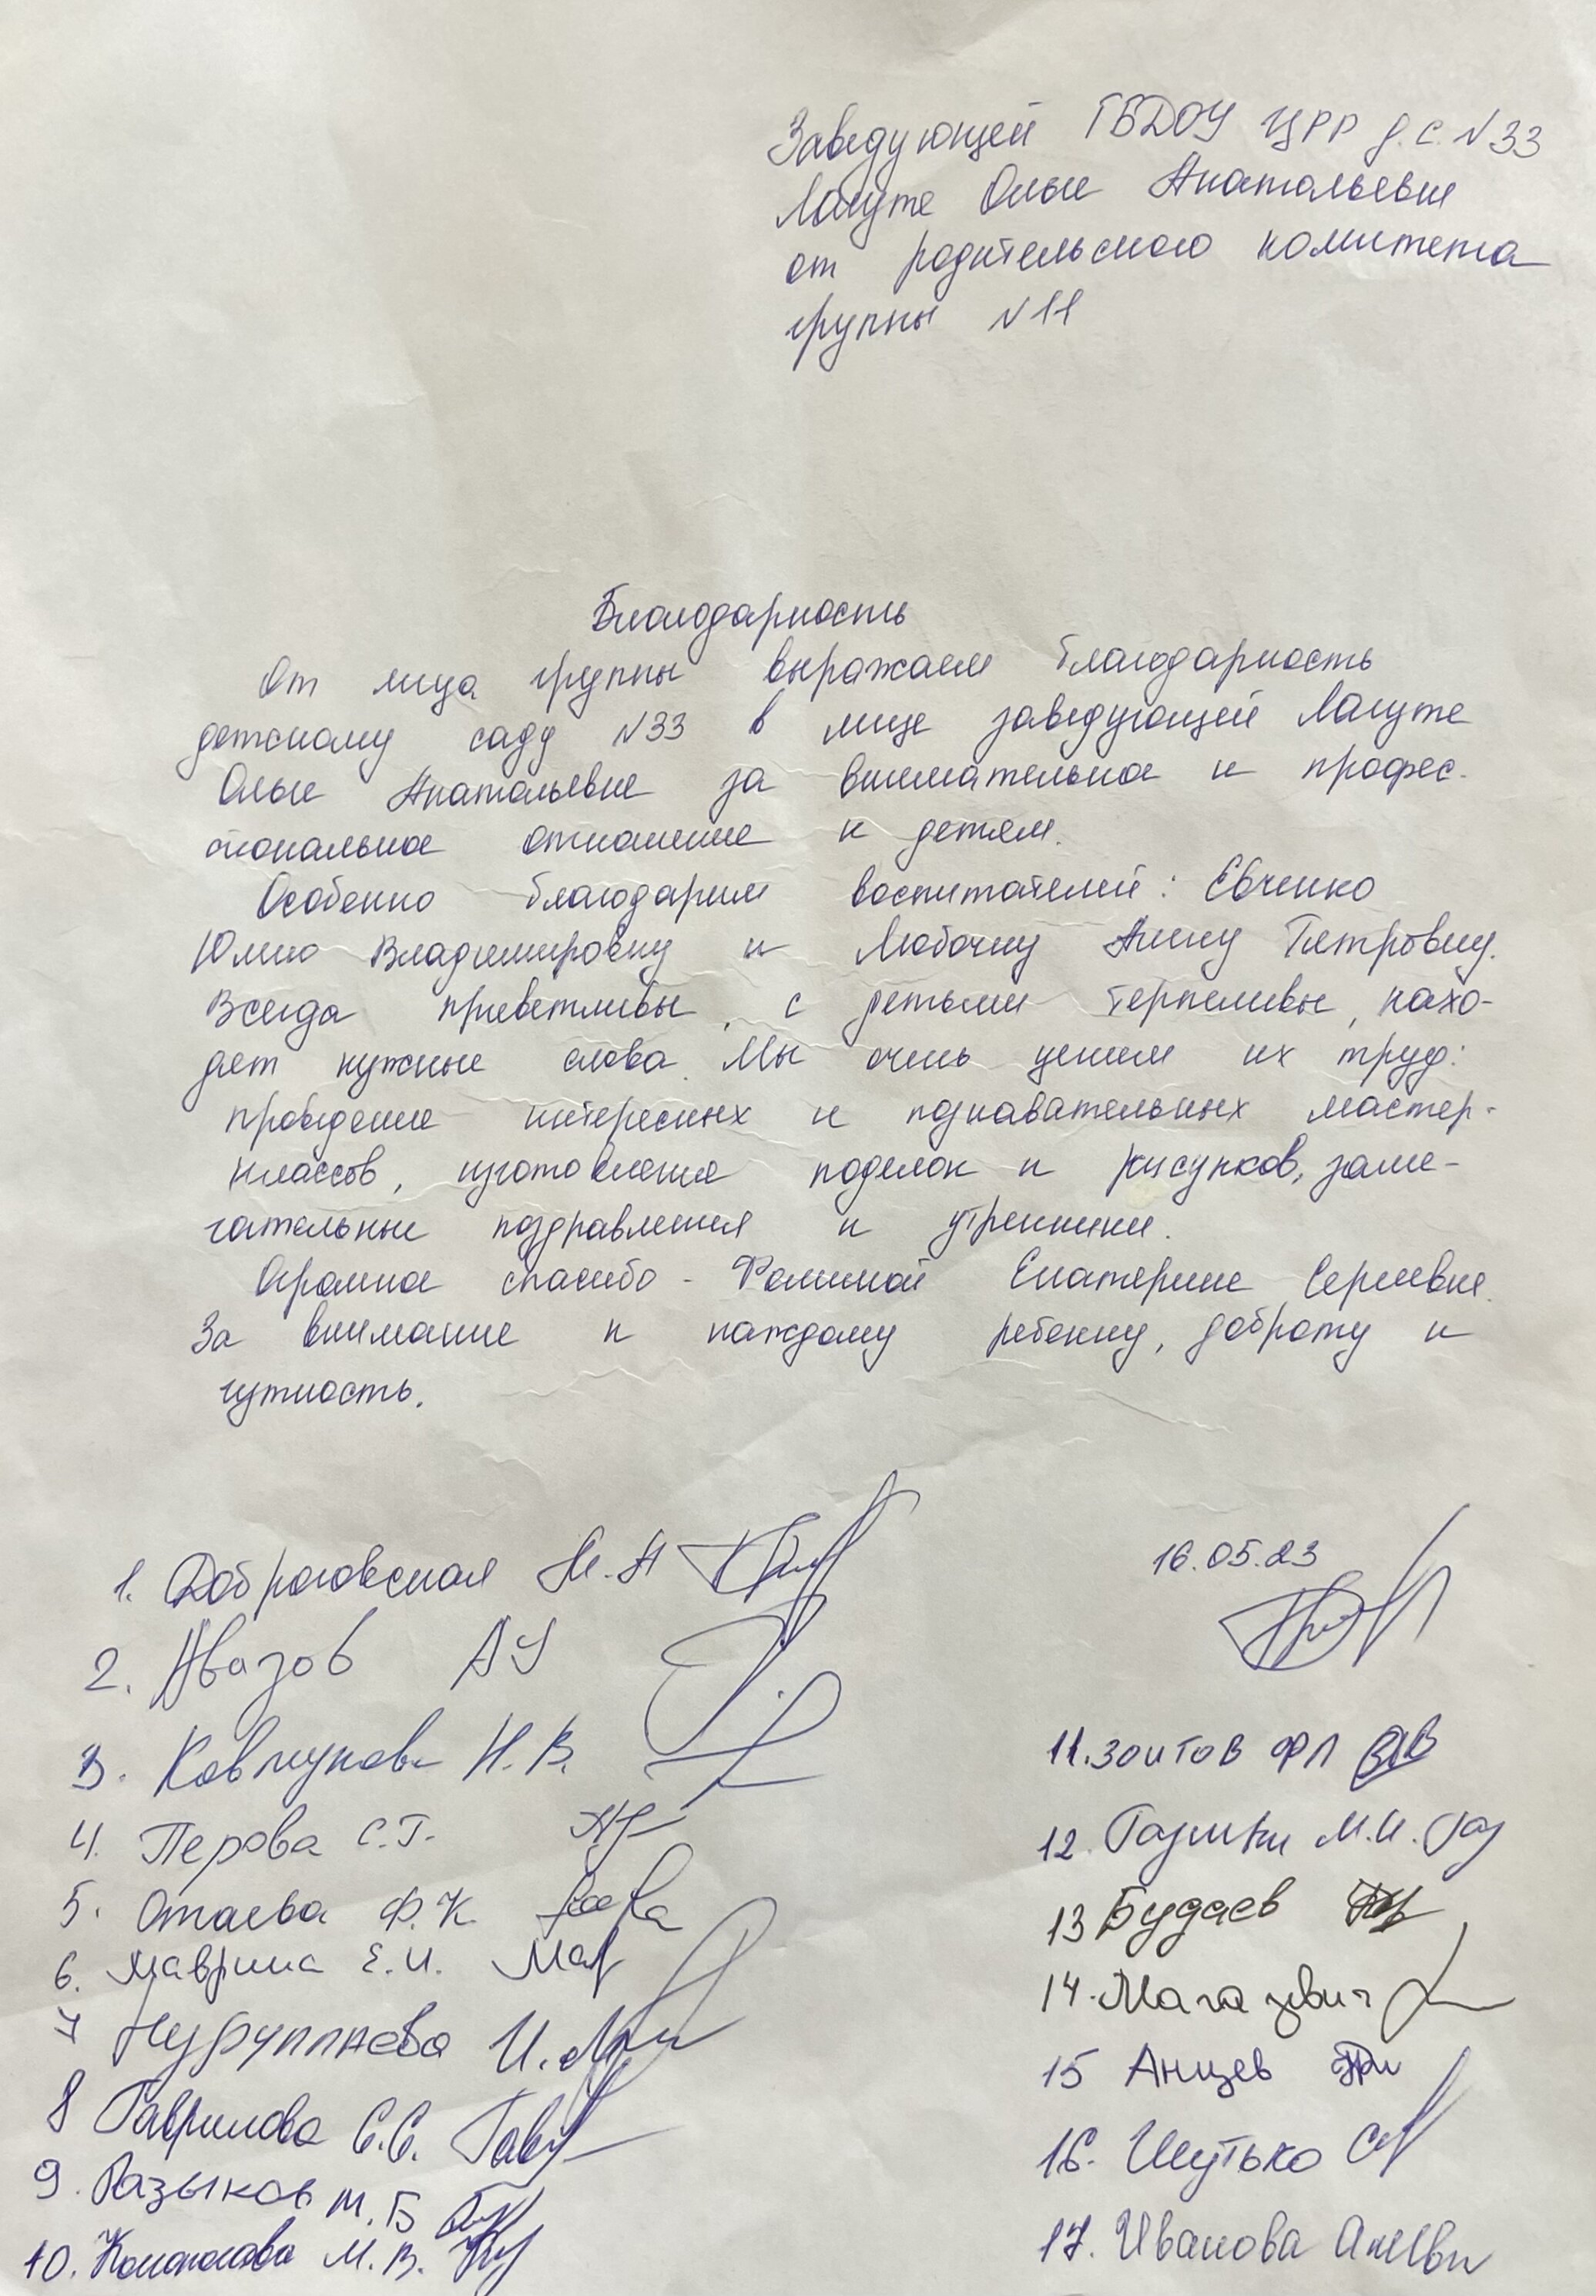 Заведующей ГБДОУ ЦРР д.с. N33
Лагуте Ольге Анатольевне
от родительского комитета
группы N11
Благодарность
От лица группы выражаем благодарность
детскому саду N33 в лице заведующей Лагуте
Ольге Анатольевне за внимательное и профес-
сиональное отношение к детям.
Особенно благодарим воспитателей: Евченко
Юлию Владимировну и Любочку Анну Петровну.
Всегда приветливы, с детьми терпеливы, нахо-
дят нужные слова. Мы очень ценим их труд:
проведение интересных и познавательных мастер-
классов, изготовление поделок и рисунков, заме-
чательные поздравления и утренники.
Огромное спасибо - Фоминой Екатерине Сергеевне.
За внимание к каждому ребенку, доброту и
чуткость.
16.05.23
1. Доброговская М.А
2. Авазов АУ
3. Н.В.
4. Перова С.Г.
5. Отаева Ф.К.
6. Маврина Е.И.
7 И.
8 Гаврилова С.С.
9. Разыков М.Б
10. М.В.
11. Зоитов ФЛ
12. М.И.
13 Будаев
14.
15 Анцев
16. Шутько
17. Иванова